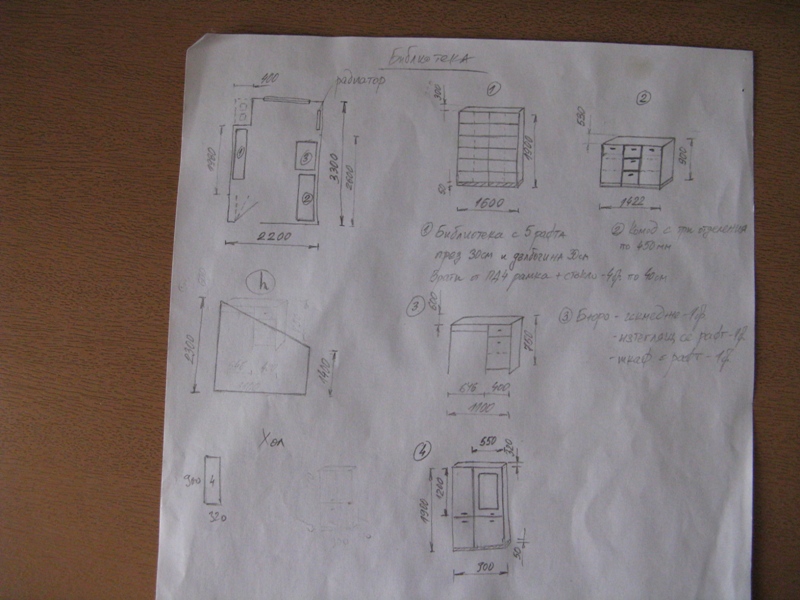 Библиотека
400
радиатор
1980
3300
2600
2
2200
1
300
1700
50
1600
2
530
900
1422
1 Библиотека с 5 рафта
през 30см и дълбочина 30см
Врати от ПДЧ рамка + стъкло - 4бр. по 40см
2 с три отделения
по 450мм
h
2300
1410
3
600
760
616 400
1100
3 Бюро - чекмедже - 1бр.
- изтеглящ се рафт - 1бр.
- шкаф с рафт - 1бр.
Хол
900
4
320
4
550
320
1200
1900
50
900